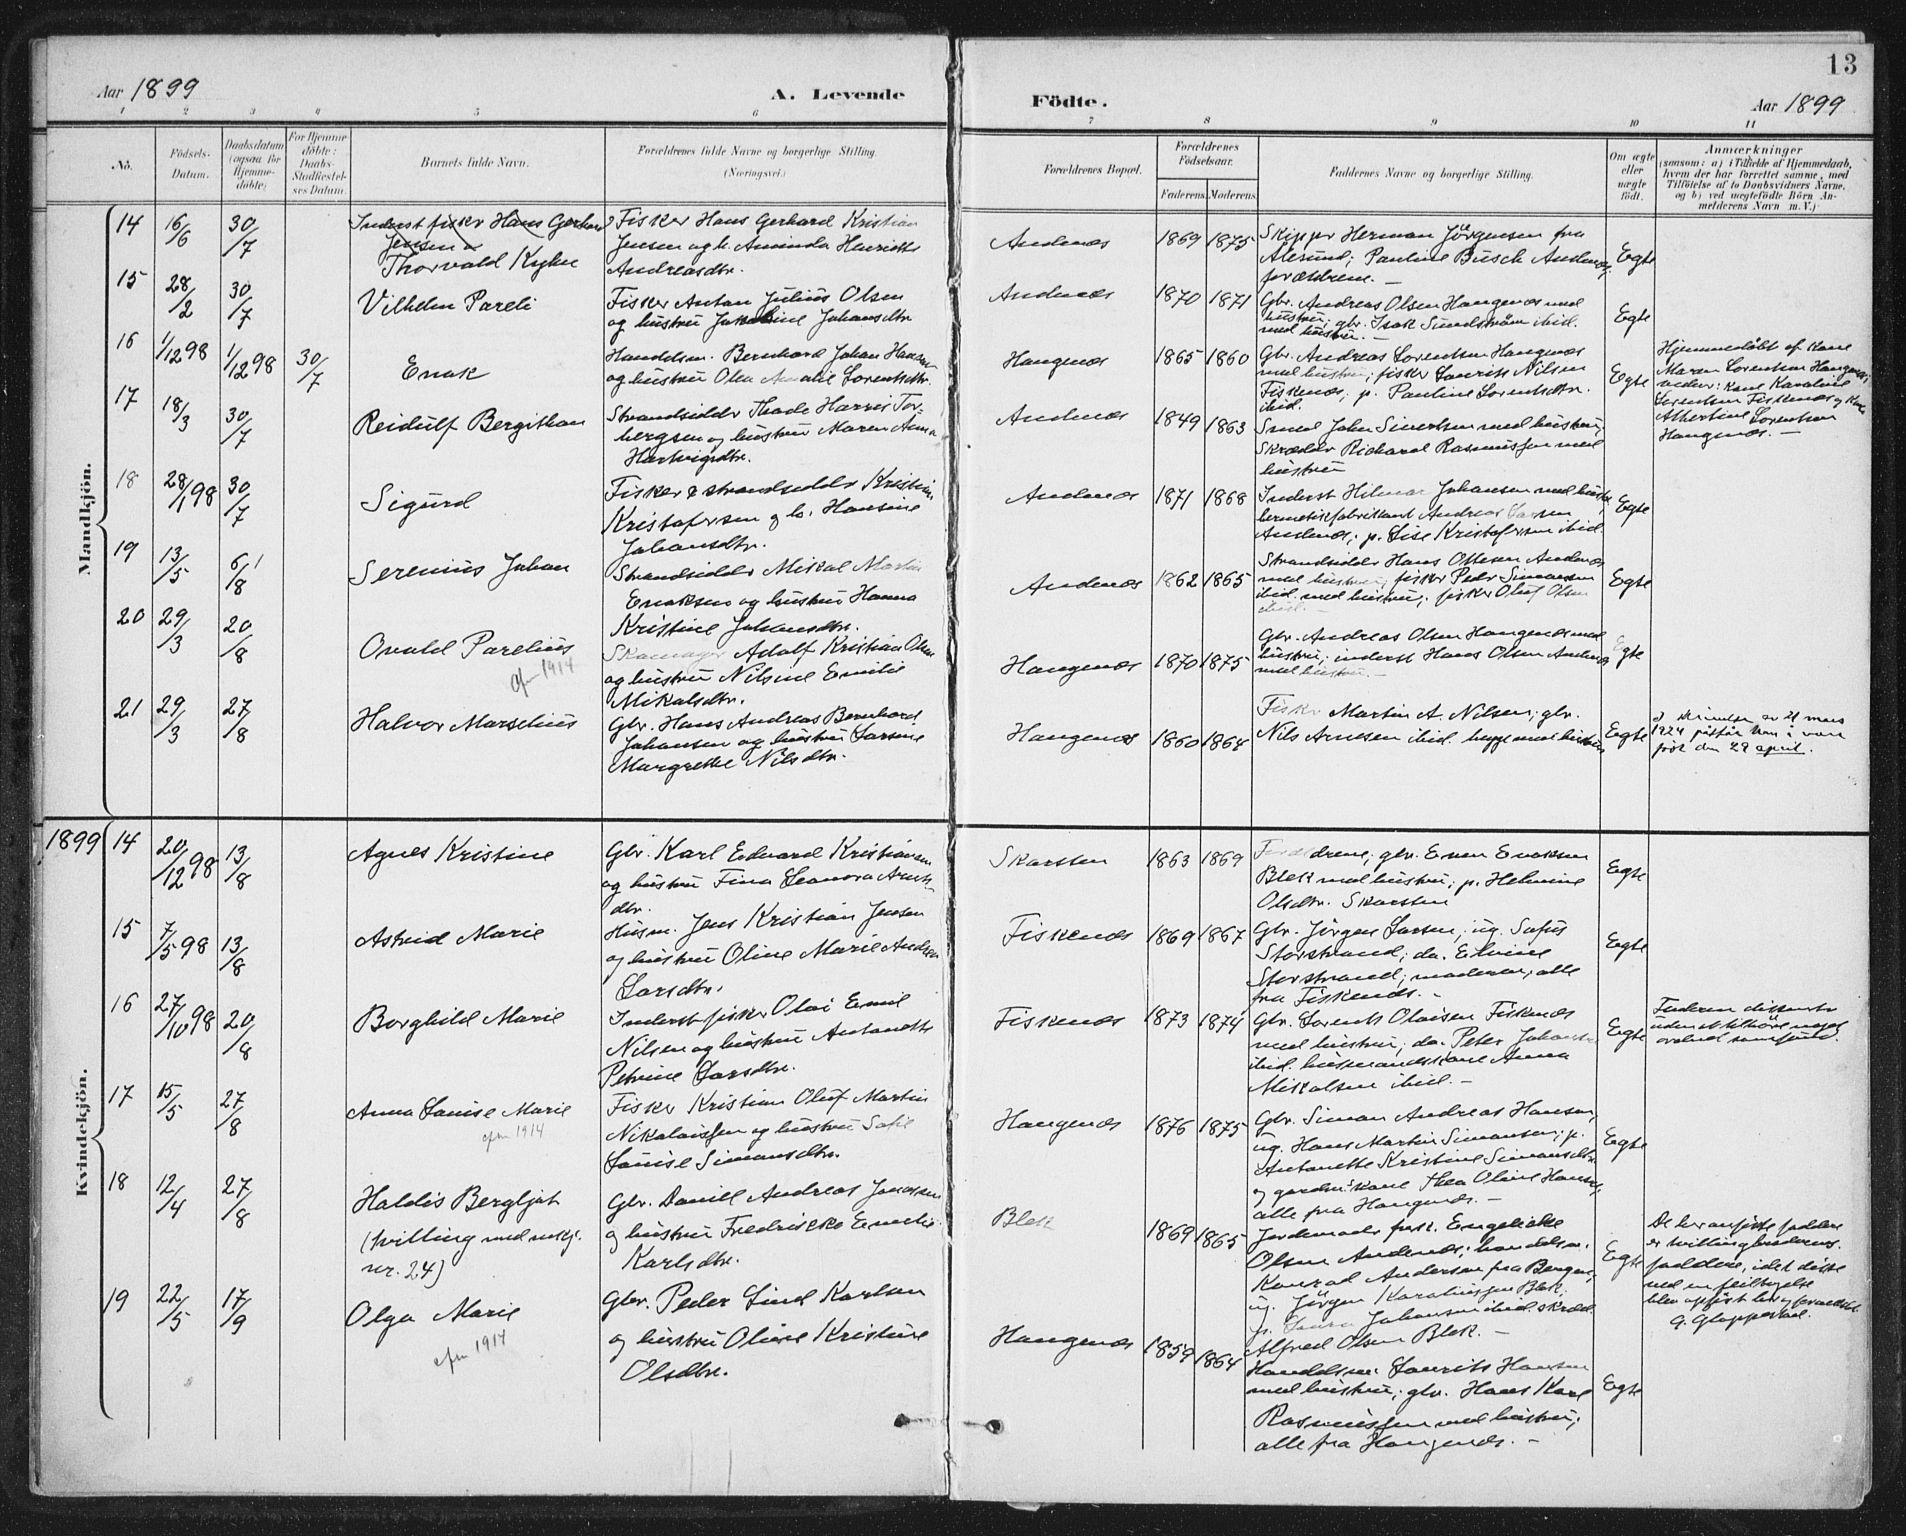 Aar 1899
A. Levende
Födte.
Aar 1899
13
1 2 3 4 5 6 7 8 9 10 11
No.
Födsels-Datum.
Daabsdatum (ogsaa for Hjemme-döbte)
For Hjemme döbte: Daabs-Stadfæstel-ses Datum.
Barnets fulde Navn.
Forældrenes fulde Navne og borgerlige Stilling. (Næringsvei.)
Forældrenes Bopæl.
Forældrenes Födselsaar.
Faderens. Moderens.
Faddernes Navne og borgerlige Stilling.
Om ægte eller uægte födt.
Anmærkninger
(saasom: a) i Tilfælde af Hjemmedaab,
hvem der har forrettet samme, med
Tilföielse af to Daabsvidners Navne,
og b) ved uægtefödte Börn An-
melderens Navn m. V.)
Mandkjön.
14 16/6 30/7
Inderst fisker Hans Gerhard
Jensen
Thorvald Kyhn
Fisker Hans Gerhard Kristian
Jensen og h. Aminda Henriette
Andreasdtr.
Andenæs 1869 1875
Skipper Herman Jörgensen fra
Ålesund; Pauline Busch Andenæs;
forældrene. —
Egte
15 28/2 30/7
Vilhelm Pareli
Fisker Anton Julius Olsen
og hustru Jakobine Johansdtr
Andenæs 1870 1871
Gbr. Andreas Olsen Haugenæs med
hustru; gbr. Isak Sundström ibid.
med hustru. —
Egte
16 1/12 98 1/12 98 30/7
Enok
Handelsm. Bernhard Johan Hansen
og hustru Olea Amalie Lorentsdtr.
Haugenæs 1865 1860
Gbr. Andreas Lorentsen Haugenæs
med hustru; fisker Laurits Nilsen
Fiskenæs; p. Pauline Lorentsdtr.
ibid.
Egte
Hjemmedöbt af Kone
Maren Lorentsen Haugenæs;
vidner: Kone Karoline
Lorentsen Fiskenæs og Kone
Albertine Lorentsen
Haugenæs. —
17 18/3 30/7
Reidulf Bergithon
Strandsidder Thade Harris Tor-
bergsen og hustru Maren Anna
Hartvigsdtr.
Andenæs 1849 1863
Smed John Sivertsen med hustru;
Skrædder Richard Rasmussen med
hustru
18 28/1 98 30/7
Sigurd
Fisker & strandsidder Kristian
Kristofersen og h. Hansine
Johansdtr.
Andenæs 1871 1868
Inderst Hilmar Johansen med hustru,
hermetikfabrikant Andreas Larsen
Andenæs; p. Lise Kristofersen ibid.
Egte
19 13/5 6/8
Serenius Johan
Strandsidder Mikal Martin
Enoksen og hustru Hanna
Kristine Johansdtr.
Andenæs 1862 1865
Strandsidder Hans Ottesen Andenæs
med hustru; fisker Peder Simonsen
ibid. med hustru; fisker Oluf Olsen
ibid. —
Egte
20 29/3 20/8
Ovald Parelius
cfm 1914
Skomager Adolf Kristian Olsen
og hustru Nilsine Emilie
Mikalsdtr.
Haugenæs 1870 1875
Gbr. Andreas Olsen Haugenæs med
hustru; inderst Hans Olsen Andenæs
med hustru. —
Egte
21 29/3 27/8
Halvor Marselius
Gbr. Hans Andreas Bernhard
Johansen og hustru Larsine
Margrethe Nilsdtr.
Haugenæs 1860 1864
Fisker Martin A. Nilsen; gbr.
Nils Arnesen ibid. begge med hustruer
Egte
I skrivelse av 21 mars
1924 påstår han
født den 29 april.
Kvindekjön.
1899 14 20/12 98 13/8
Agnes Kristine
Gbr. Karl Edvard Kristiansen
og hustru Fina Leonora Arnts-
dtr.
Skarsten 1863 1869
Forældrene; gbr. Even Enoksen
Blek med hustru; p. Helmine
Olsdtr. Skarsten
Egte
15 7/5 98 13/8
Astrid Marie
Husm. Jens Kristian Jensen
og hustru Oline Marie Andrea
Larsdtr.
Fiskenæs 1869 1867
Gbr. Jörgen Larsen; ug. Sofus
Storstrand; do. Edvine
Storstrand; moderen; alle
fra Fiskenæs. —
Egte
16 27/10 98 20/8
Borghild Marie
Inderst fisker Olai Emil
Nilsen og hustru Antonette
Petrine Larsdtr.
Fiskenæs 1873 1874
Gbr. Lorents Olaisen Fiskenæs
med hustru; do. Peter Johansen
ibid. husmandskone Anna
Mikalsen ibid. —
Egte
Faderen dissenter
uden at tilhöre noget
ordnet samfund.
17 15/5 27/8
Anna Louise Marie
cfm 1914
Fisker Kristian Oluf Martin
Nikolaissen og hustru Sofie
Louise Simonsdtr.
Haugenæs 1876 1875
Gbr. Simon Andreas Hansen,
ug. Hans Martin Simonsen; p.
Antonette Kristine Simonsdtr.
og gardm.kone Thea Oline Hansen,
alle fra Haugenæs. —
Egte
18 12/4 27/8
Haldis Bergljot
(tvilling med mskj.
nr. 24)
Gbr. Daniel Andreas Jonassen
og hustru Fredrikke Emelie
Karlsdtr.
Blek 1869 1865
Jordemoder frk. Engelikke
Olsen Andenæs; handelsm.
Konrad Anderson fra Bergen;
ug. Jörgen Karoliussen Blek;
p. Laura Johansen ibid. skræd.
Alfred Olsen Blek. —
Egte
De her anførte faddere
er tvillingbroderens
faddere, idet disse
ved en feiltagelse
blev opført her
G. Gloppestad.
19 22/5 17/9
Olga Marie
cfm 1914
Gbr. Peder Lind Karlsen
og hustru Oline Kristine
Olsdtr.
Haugenæs 1859 1864
Handelsm. Laurits Hansen
med hustru; gbr. Hans Karl
Rasmussen med hustru;
alle fra Haugenæs. —
Egte